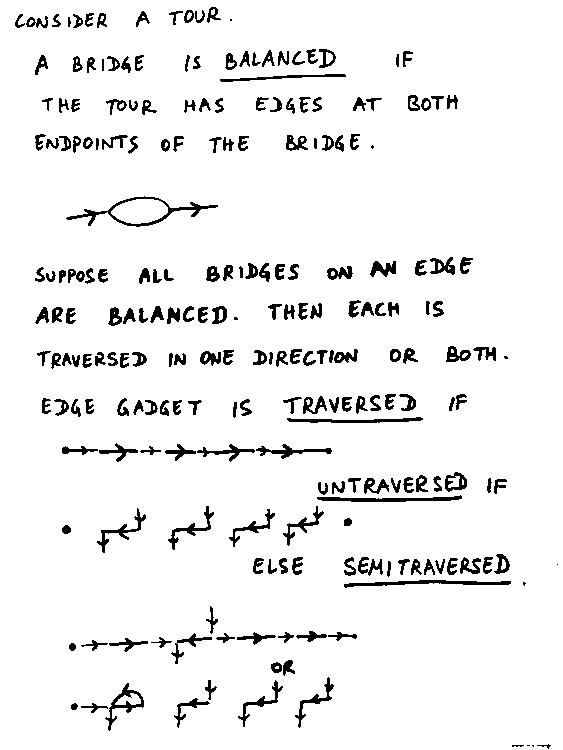 CONSIDER A TOUR.
A BRIDGE IS BALANCED IF
THE TOUR HAS EDGES AT BOTH
ENDPOINTS OF THE BRIDGE.
SUPPOSE ALL BRIDGES ON AN EDGE
ARE BALANCED. THEN EACH IS
TRAVERSED IN ONE DIRECTION OR BOTH.
EDGE GADGET IS TRAVERSED IF
UNTRAVERSED IF
ELSE SEMITRAVERSED.
OR